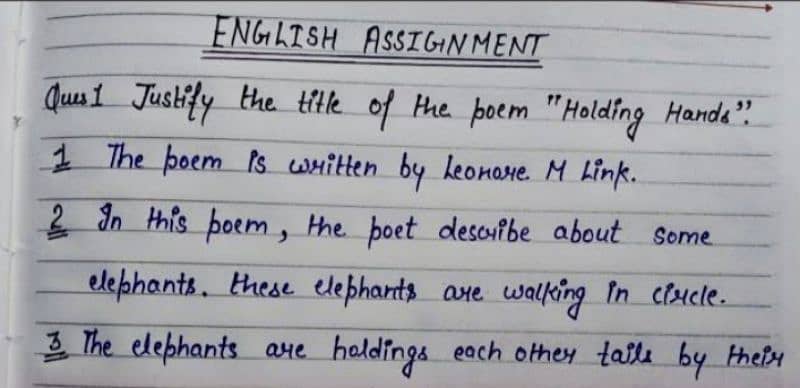 ENGLISH ASSIGNMENT
Ques 1 Justify the title of the poem "Holding Hands".
1 The poem is written by Leonore M Link.
2 In this poem, the poet describe about some
elephants. these elephants are walking in circle.
3 The elephants are holdings each other tails by their